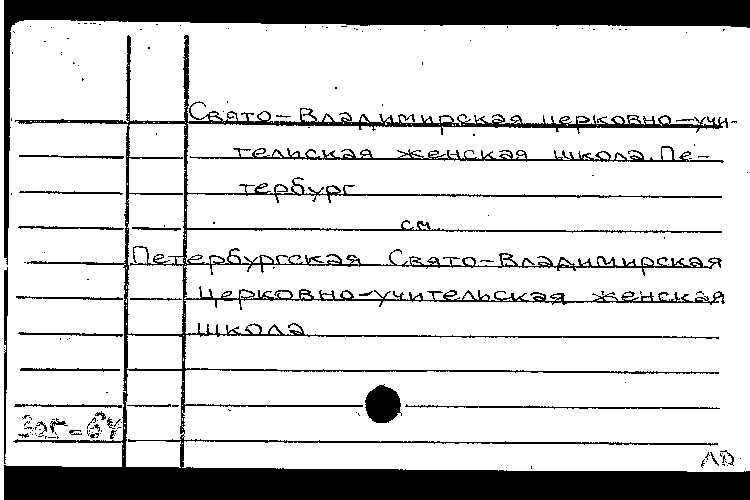 Свято-Владимирская церковно-учи-
тельская женская школа. Пе-
тербург
см.
Петербургская Свято-Владимирская
церковно-учительская женская
школа
305-64
ЛД